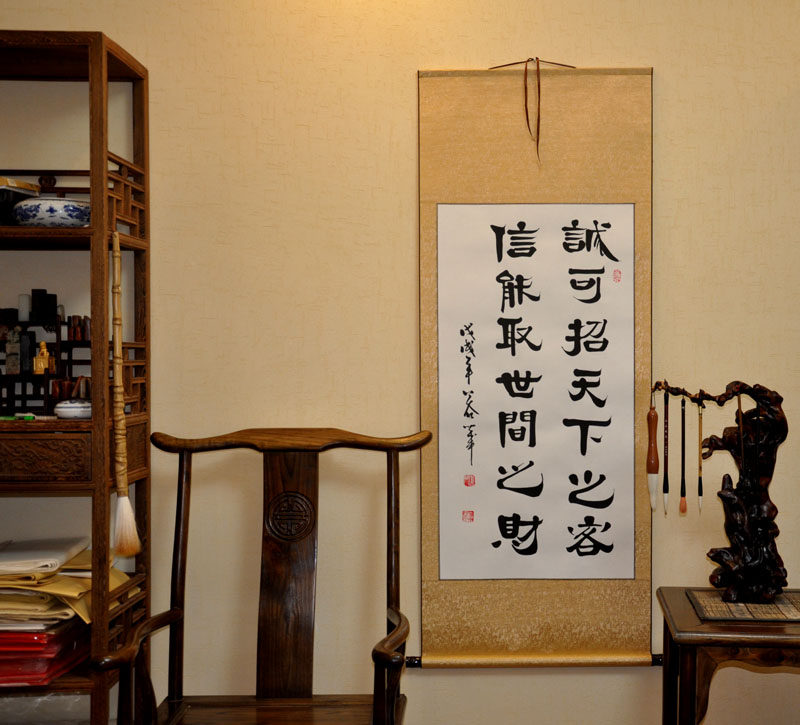 誠可招天下之客
信能取世間之財
戊戌年